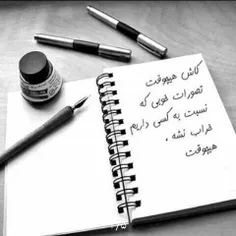 کاش هیچوقت
تصورات خوبی که
نسبت به کسی داریم
خراب نشه ،
هیچوقت